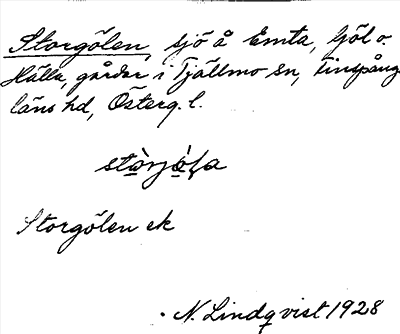 Storgölen, sjö å Emta, Göl o.
Hälla, gårdar i Tjällmo sn, Finspånga
läns hd, Österg. l.
Storgölen ek
N. Lindqvist 1928